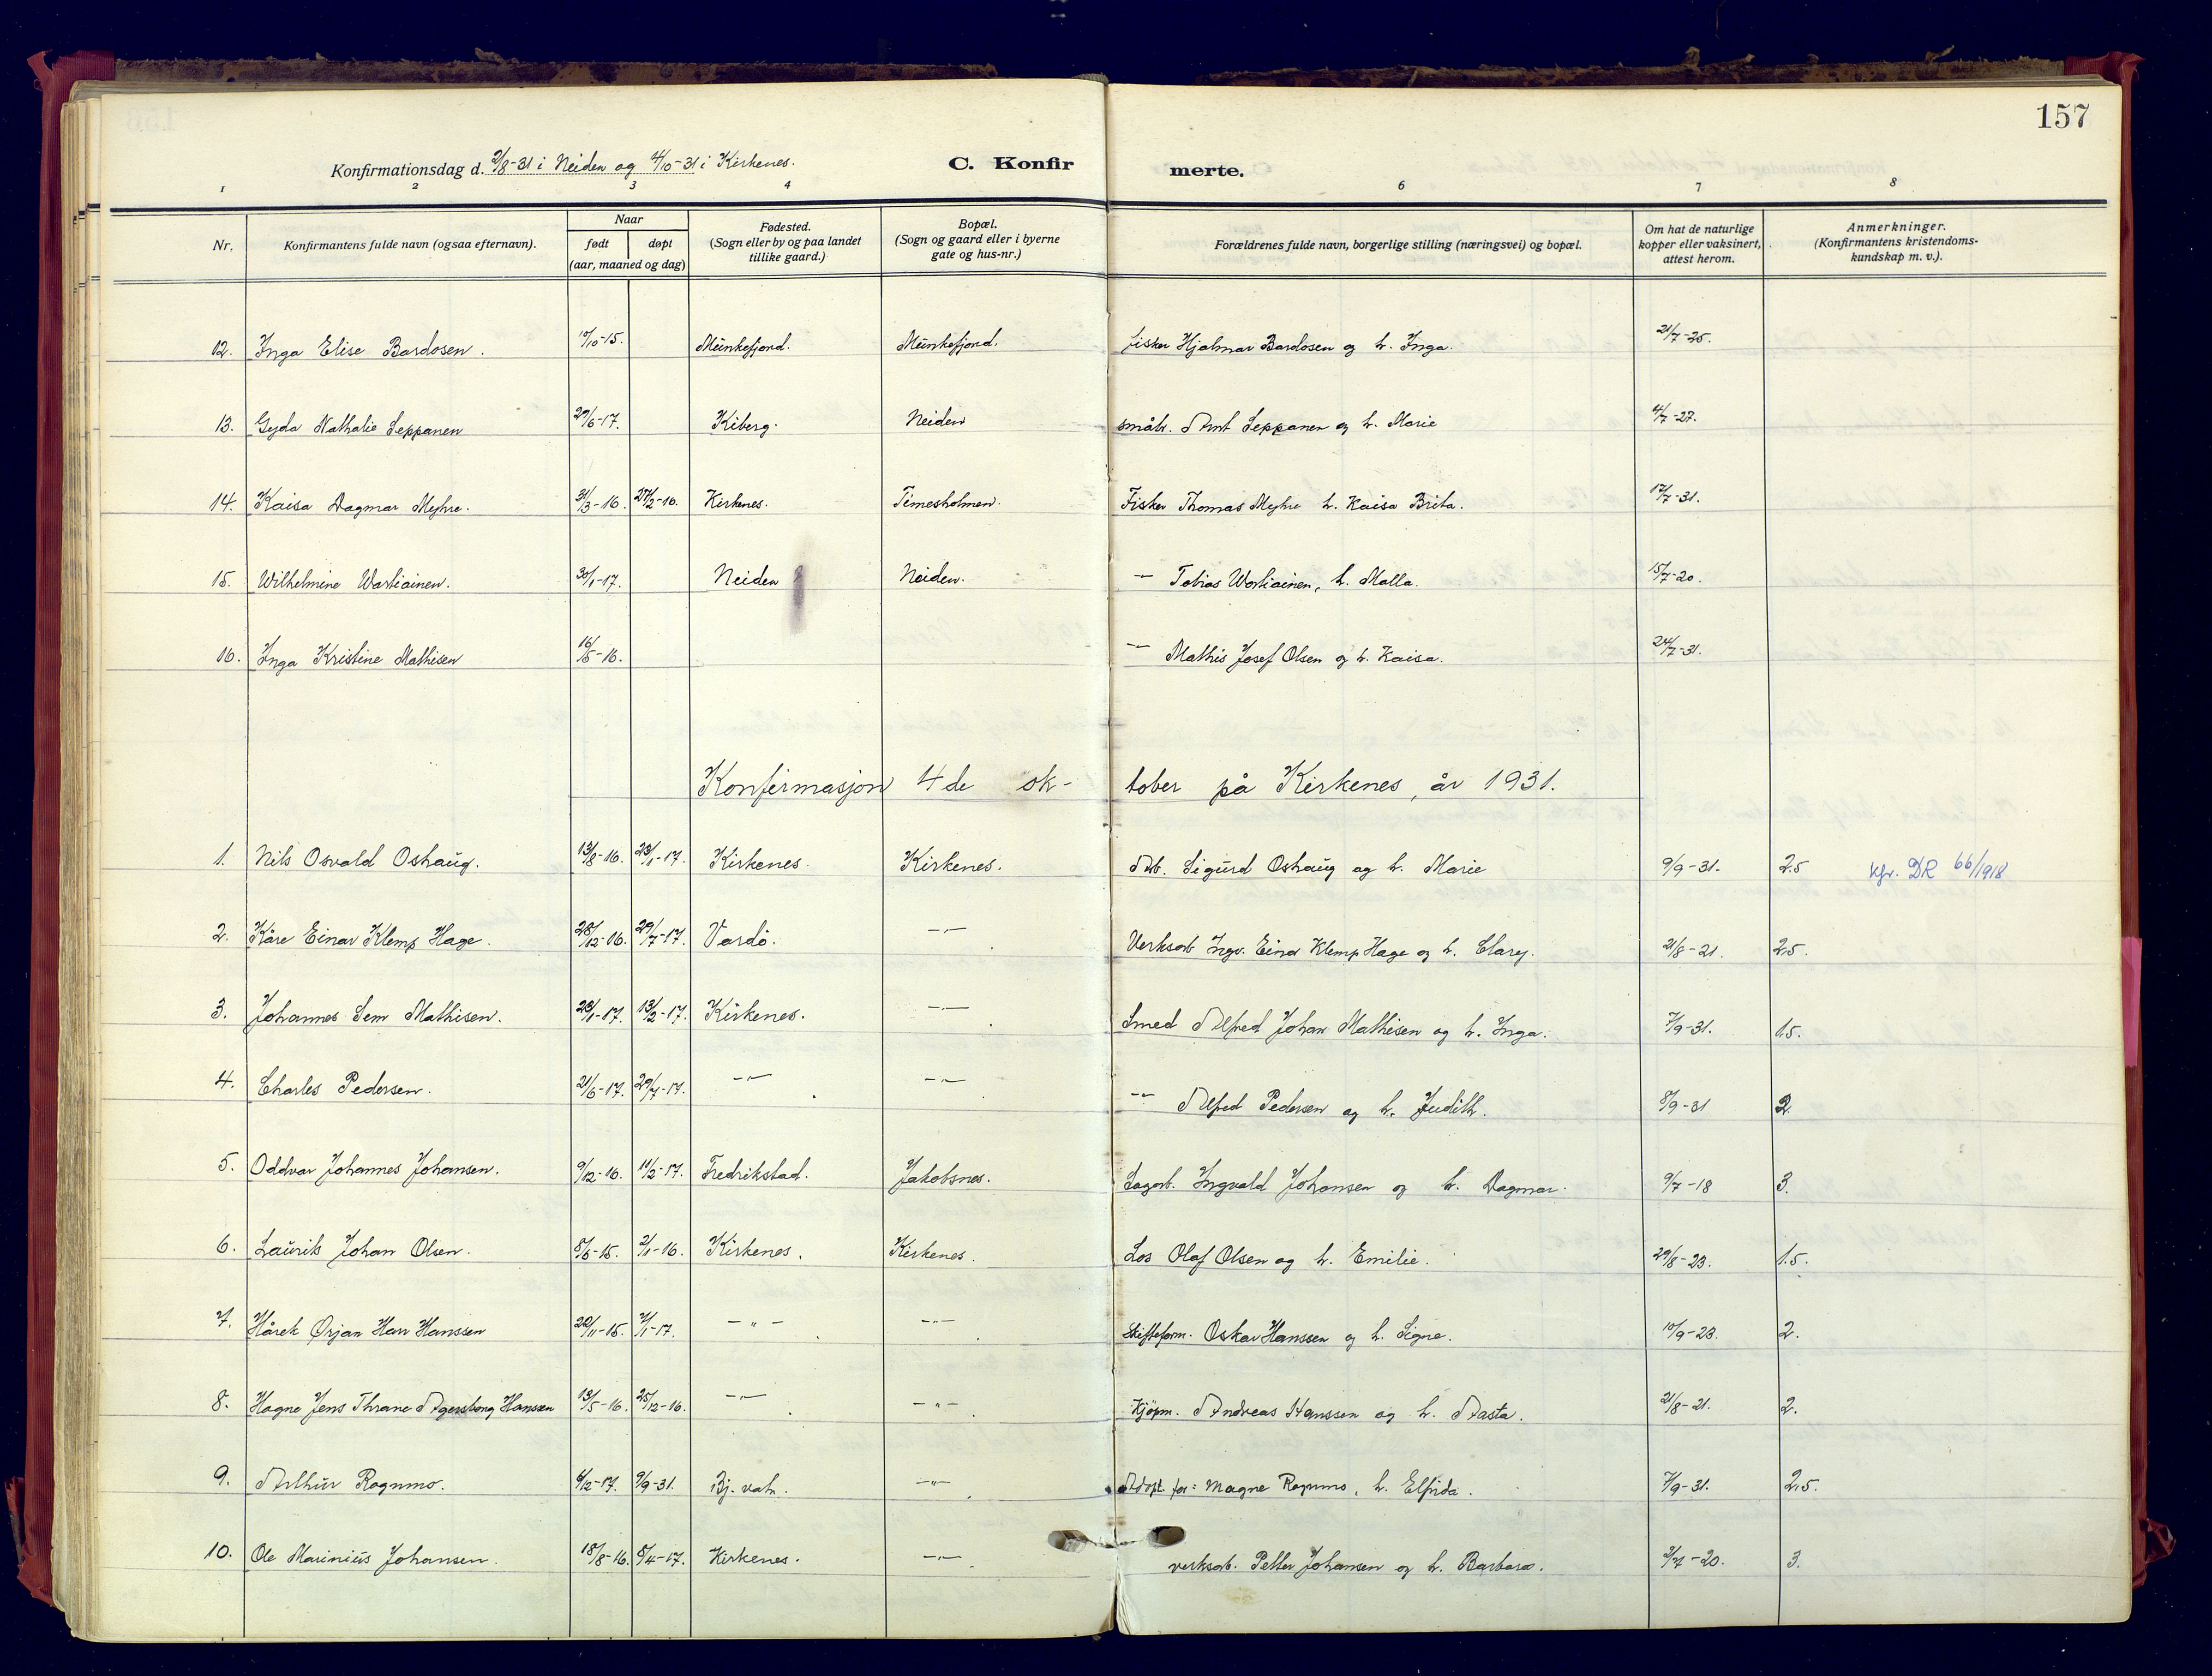 157
Konfirmationsdag d. 2/8-31 i Neiden og 4/10-31 i Kirkenes. C. Konfir merte.
1 2 3 4 6 7 8
Nr. Konfirmantens fulde navn (ogsaa efternavn). Naar født døpt (aar, maaned og dag) Fødested. (Sogn eller by og paa landet tillike gaard.) Bopæl. (Sogn og gaard eller i byerne gate og hus-nr.) Forældrenes fulde navn, borgerlige stilling (næringsvei) og bopæl. Om hat de naturlige kopper eller vaksinert, attest herom. Anmerkninger. (Konfirmantens kristendoms-kundskap m. v.).
12. Inga Elise Bardosen. 10/10-15. Münkefjord. Münkefjord. fisker Hjalmar Bardosen og h. Inga. 21/7-25.
13. Gyda Nathalie Seppanen 29/6-17. Kiberg. Neiden småbr. Arnt Seppanen og h. Marie 4/7-27.
14. Kaisa Dagmar Myhre. 31/3-16. Kirkenes. Timesholmen. Fisker Thomas Myhre h. Kaisa Brita. 17/7-31.
15. Wilhelmine Wartiainen. 30/1-17. Neiden Neiden. -"- Tobias Wartiainen, h. Malla. 15/7-20.
16. Inga Kristine Mathisen 16/5-16. -"- Mathis Josef Olsen og h. Kaisa. 24/7-31.
Konfirmasjon 4de ok-tober på Kirkenes, år 1931.
1. Nils Osvald Oshaug. 13/8-16. 23/1-17. Kirkenes. Kirkenes. Arb. Sigurd Oshaug og h. Marie 9/9-31. 2.5 kfr. DR 66/1918
2. Kåre Einar Klemp Hage. 28/12-16. 29/7-17. Vardö. -"- Verksarb Ingv. Einar Klemp Hage og h. Clary. 21/8-21. 2.5.
3. Johannes Sem Mathisen. 28/1-17. 13/2-17. Kirkenes. -"- Smed Alfred Johan Mathisen og h. Inga. 7/9-31. 1.5.
4. Charles Pedersen. 21/6-17. 29/7-17. -"- -"- -"- Alfred Pedersen og h. Judith. 8/9-31 2.
5. Oddvar Johannes Johansen. 9/12-16. 11/2-17. Fredrikstad. Jakobsnes. Sagarb. Ingvald Johansen og h. Dagmar. 9/7-18 3.
6. Laurits Johan Olsen. 8/6-15. 2/1-16. Kirkenes. Kirkenes. Los Olaf Olsen og h. Emilie. 29/8-23. 1.5.
7. Hårek Ørjan Han Hanssen 22/11-15. 7/1-17. -"- -"- Skifteform. Oskar Hanssen og h. Signe. 10/9-23. 2.
8. Hagne Jens Thrane Agersborg Hanssen 13/5-16. 25/12-16. -"- -"- Kjöpm. Andreas Hanssen og h. Aasta. 21/8-21. 2.
9. Arthur Rognmo. 6/12-17. 9/9-31. Bj. vatn. -"- Adopt. for: Magne Rognmo, h. Elfrida. 7/9-31. 2.5.
10. Ole Marinius Johansen. 18/8-16. 8/4-17. Kirkenes. -"- verksarb. Petter Johansen og h. Barbara. 3/7-20. 3.